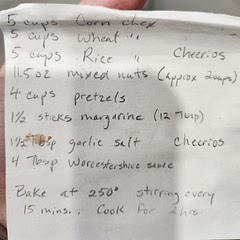 5 cups Corn chex
5 cups Wheat "
5 cups Rice " Cheerios
11.5 oz mixed nuts (Approx 2 cups)
4 cups pretzels
1½ sticks margarine (12 Tbsp)
1½ Tbsp garlic salt cheerios
4 Tbsp Worcestershire sauce
Bake at 250° stirring every
15 mins., Cook for 2 hrs